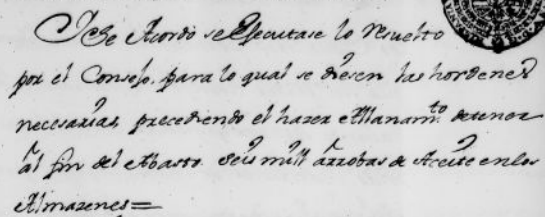 Y Se Acordó se Ejecutase lo resuelto
por el Consejo, para lo qual se diesen las hordenes
necesarias, precediendo el hazer Allanam.to de tenor
al fin del Abasto seis mill arrobas de Aceite en los
Almazenes =